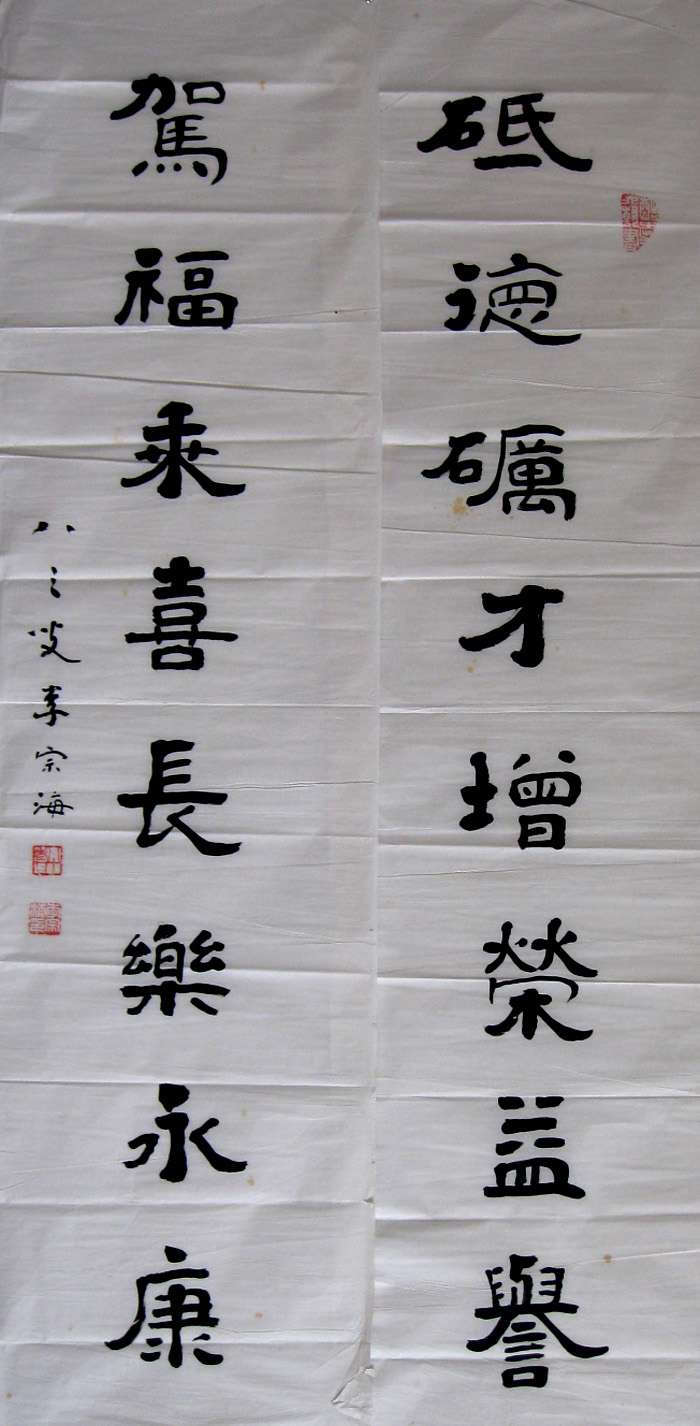 砥德礪才增榮益譽
駕福乘喜長樂永康
八二叟李宗海